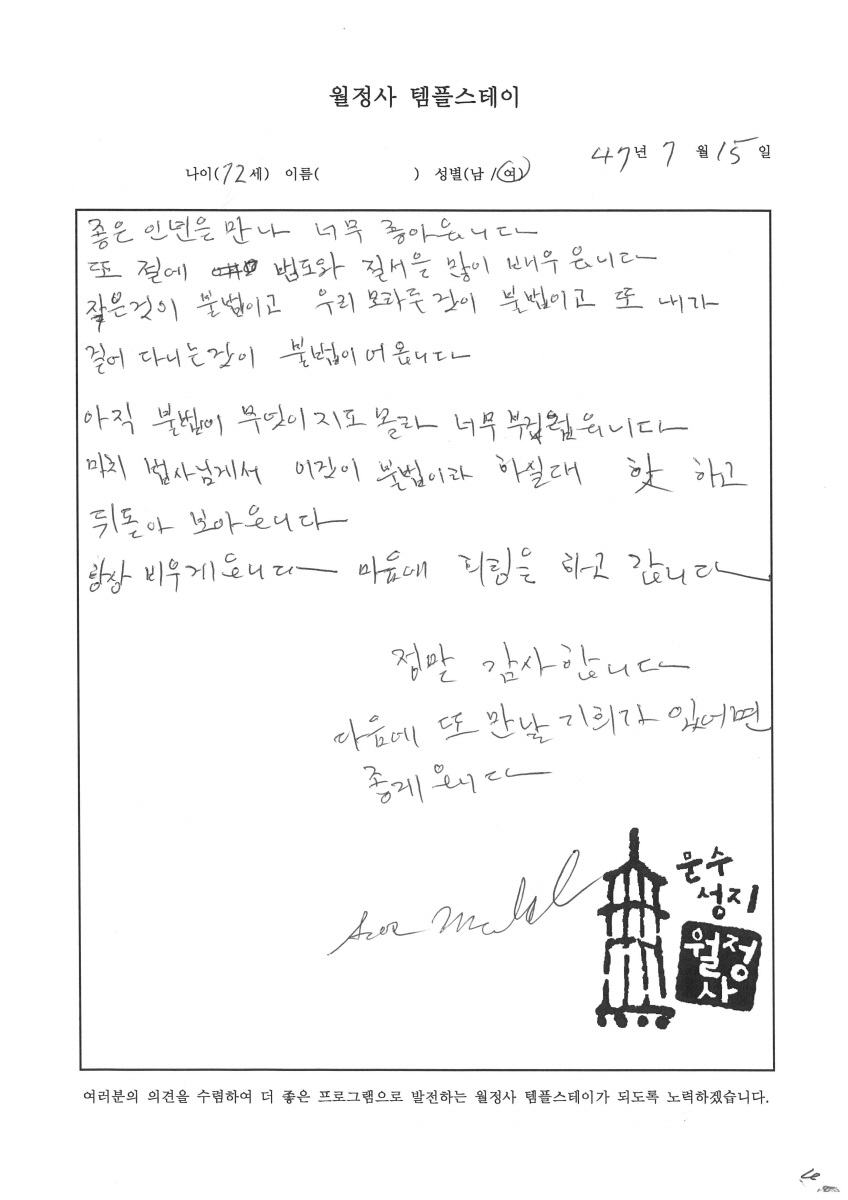 월정사 템플스테이
47년 7월 15일
나이(72세) 이름( ) 성별(남/여)
좋은 인년을 만나 너무 좋아읍니다
또 절에 법도와 질서을 많이 배우읍니다
작은것이 불법이고 우리 모라두것이 불법이고 또 내가
걸어 다니는것이 불법이어읍니다
아직 불법이 무엇이지도 몰라 너무 읍니다
마치 법사님게서 이것이 불법이라 하실대 핫 하고
뒤돌아 보아읍니다
항상 비우게읍니다 마음에 피림을 하고 갑니다
정말 감사합니다
다음에 또 만날 기회가 있어면
좋게읍니다
문수
성지
월정
사
여러분의 의견을 수렴하여 더 좋은 프로그램으로 발전하는 월정사 템플스테이가 되도록 노력하겠습니다.